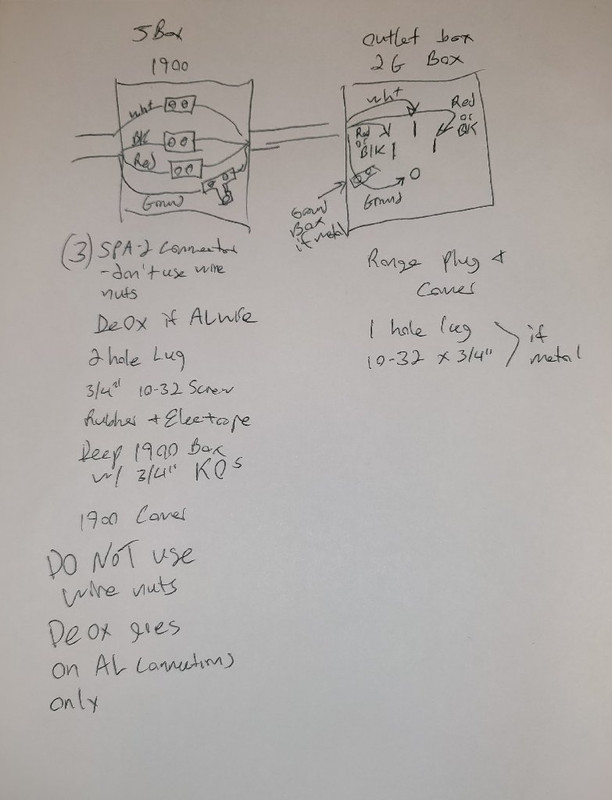 JBox
1900
wht
BlK
Red
Ground
(3) SPA-2 Connector
- don't use wire
nuts
DeOx if AL wire
2 hole Lug
3/4" 10-32 Screw
Rubber + Electape
Deep 1900 Box
w/ 3/4" KOs
1900 Cover
DO NOT use
wire nuts
DeOx goes
on AL Connections
only
outlet box
2G Box
wht
Red
or
BlK
Red
or
BlK
Ground
Ground
Box
if metal
Range plug +
Cover
1 hole lug
10-32 x 3/4"
if
metal